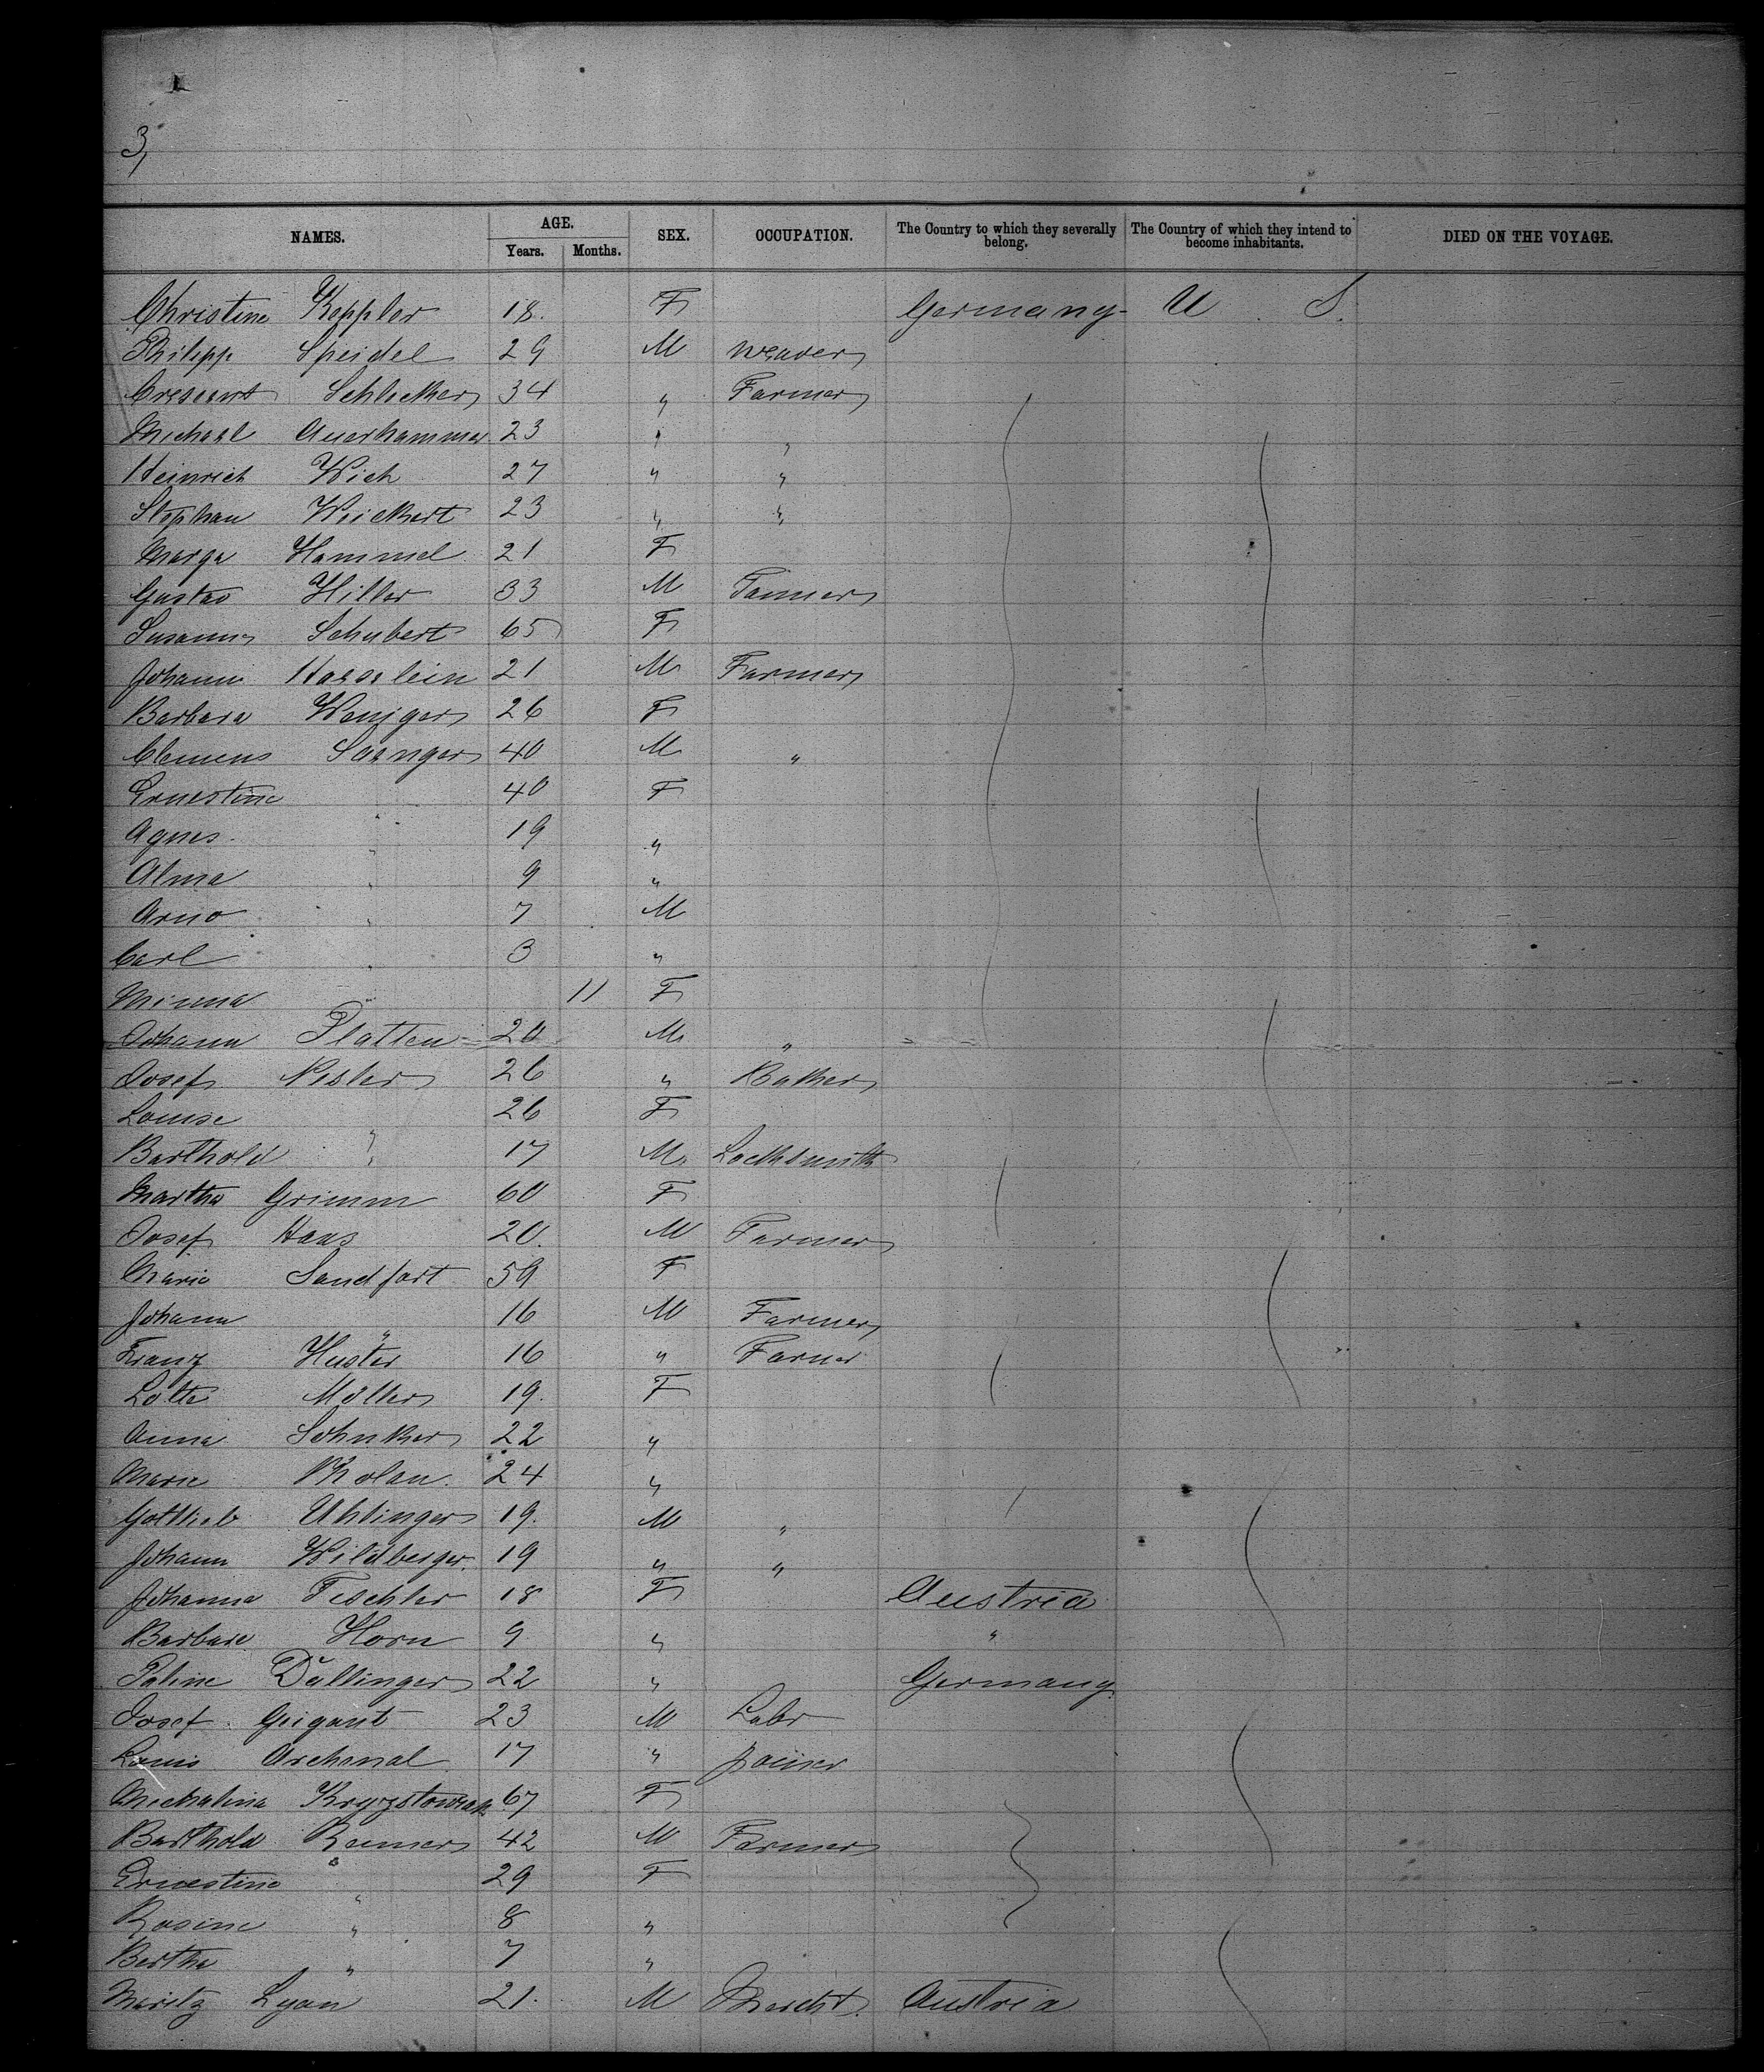 3,
NAMES. AGE. SEX. OCCUPATION. The Country to which they severally belong. The Country of which they intend to become inhabitants. DIED ON THE VOYAGE.
Years. Months.
Christine Keppler 18. F Germany- U. S.
Philipp Speidel 29 M weaver
Crescent Schlicker 34 " Farmer
Michael Auerhammer 23 " "
Heinrich Wich 27 " "
Stephan Weickert 23 " "
Marga Hammel 21 F
Gustav Hiller 33 M Tanner
Susanna Schubert 65 F
Johann Haesslein 21 M Farmer
Barbara Weniger 26 F
Clemens Saenger 40 M "
Ernestine " 40 F
Agnes " 19 "
Alma " 9 "
Arno " 7 M
Carl " 3 "
Minna " 11 F
Johann Platten 20 M "
Josef Nester 26 " Baker
Louise " 26 F
Barthold " 17 M. Locksmith
Martha Grimm 60 F
Josef Haas 20. M Farmer
Marie Sandfort 59 F
Johann " 16 M Farmer
Franz Huster 16 " Farmer
Lotte Möller 19. F
Anna Schnker 22 "
Marie 24 "
Gottlieb Uhlinger 19. M "
Johann Wildberger. 19 " "
Johanna Tischler 18 F Austria
Barbara Horn 9 " "
Dullinger 22 " Germany
Josef Geigant 23 M Labr
Louis Archenal 17 " joiner
Michalina Krzystowiak 67 F
Barthold Reimers 42 M Farmer
Ernestine " 29 F
Rosine " 8 "
Bertha " 7 "
Moritz Lyon 21. M Mercht. Austria